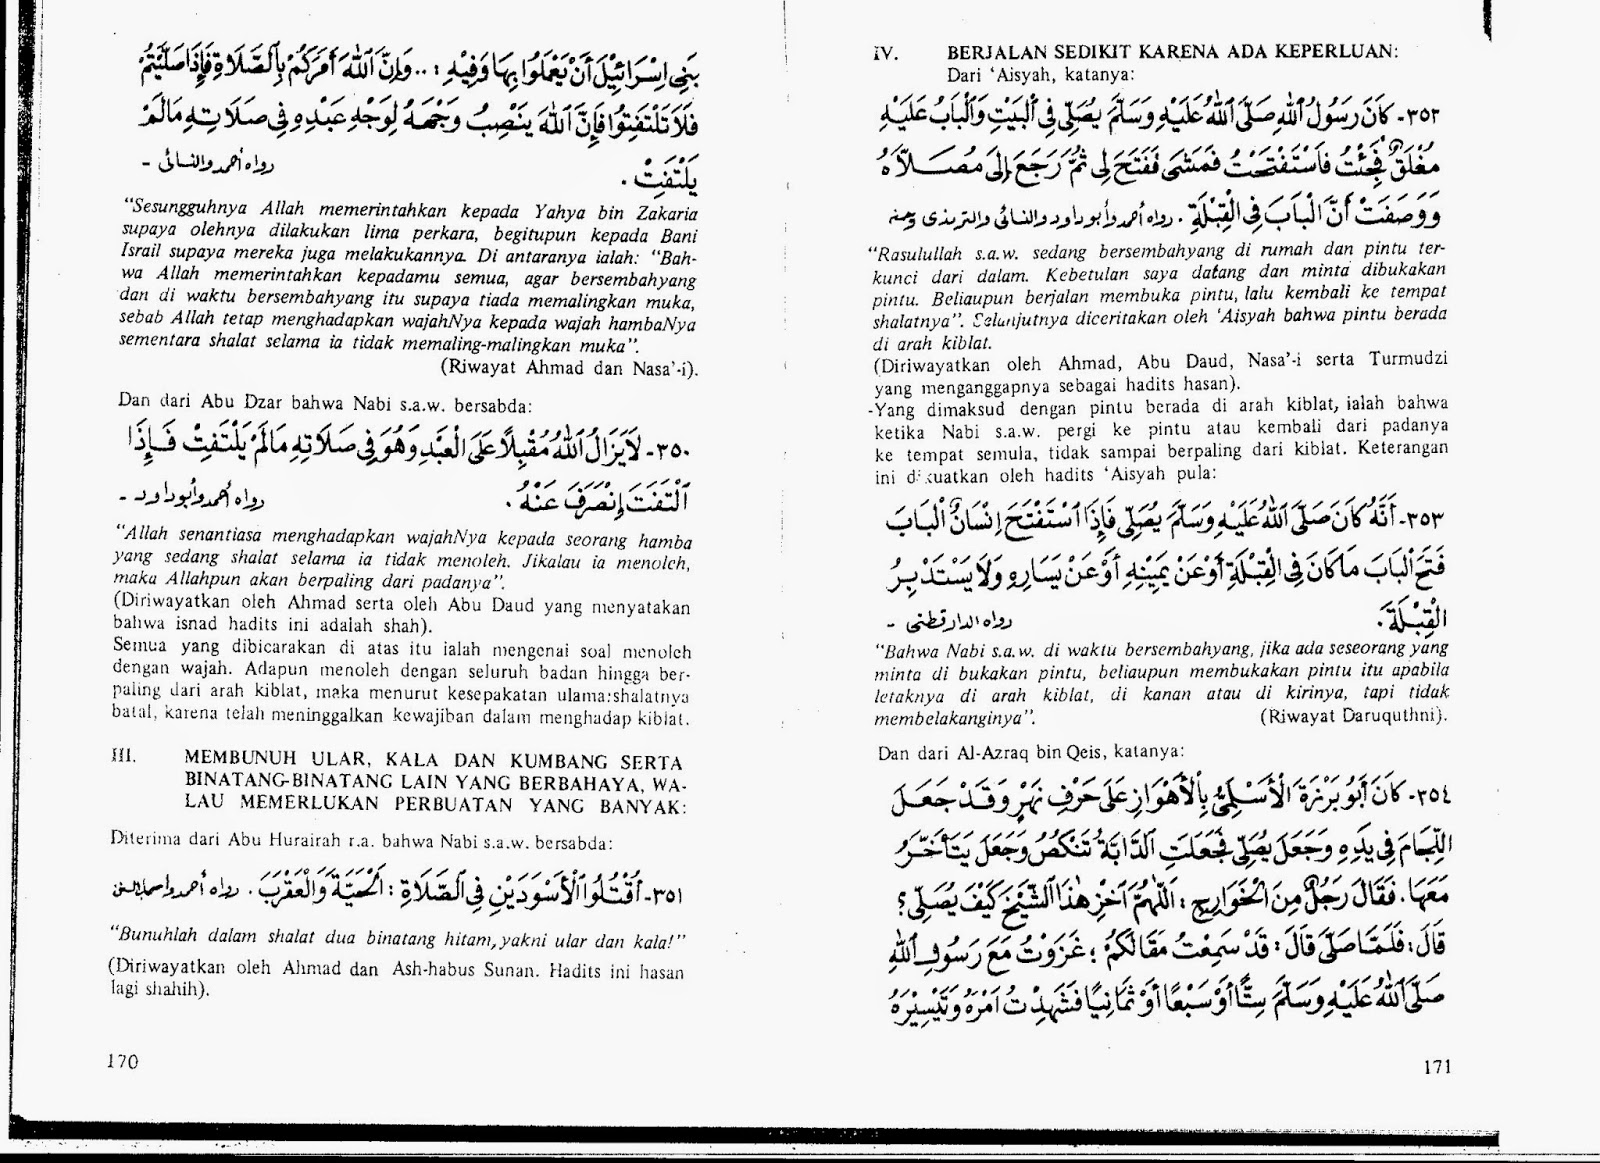 بَنِي اِسْرَائِيْلَ أَنْ يَعْمَلُوا بِهَا وَفِيْهِ : .. وَاِنَّ اللهَ أَمَرَكُمْ بِالصَّلَاةِ فَإِذَا صَلَّيْتُمْ
فَلَا تَلْتَفِتُوا فَإِنَّ اللهَ يَنْصِبُ وَجْهَهُ لِوَجْهِ عَبْدِهِ فِى صَلَاتِهِ مَالَمْ
يَلْتَفِتْ . رواه أحمد والنسائى -
"Sesungguhnya Allah memerintahkan kepada Yahya bin Zakaria
supaya olehnya dilakukan lima perkara, begitupun kepada Bani
Israil supaya mereka juga melakukannya. Di antaranya ialah: "Bah-
wa Allah memerintahkan kepadamu semua, agar bersembahyang
dan di waktu bersembahyang itu supaya tiada memalingkan muka,
sebab Allah tetap menghadapkan wajahNya kepada wajah hambaNya
sementara shalat selama ia tidak memaling-malingkan muka".
(Riwayat Ahmad dan Nasa'-i).
Dan dari Abu Dzar bahwa Nabi s.a.w. bersabda:
٣٥٠- لَا يَزَالُ اللهُ مُقْبِلًا عَلَى الْعَبْدِ وَهُوَ فِى صَلَاتِهِ مَالَمْ يَلْتَفِتْ فَإِذَا
الْتَفَتَ اِنْصَرَفَ عَنْهُ . رواه أحمد وأبوداود -
"Allah senantiasa menghadapkan wajahNya kepada seorang hamba
yang sedang shalat selama ia tidak menoleh. Jikalau ia menoleh,
maka Allahpun akan berpaling dari padanya".
(Diriwayatkan oleh Ahmad serta oleh Abu Daud yang menyatakan
bahwa isnad hadits ini adalah shah).
Semua yang dibicarakan di atas itu ialah mengenai soal menoleh
dengan wajah. Adapun menoleh dengan seluruh badan hingga ber-
paling dari arah kiblat, maka menurut kesepakatan ulama:shalatnya
batal, karena telah meninggalkan kewajiban dalam menghadap kiblat.
III. MEMBUNUH ULAR, KALA DAN KUMBANG SERTA
BINATANG-BINATANG LAIN YANG BERBAHAYA, WA-
LAU MEMERLUKAN PERBUATAN YANG BANYAK:
Diterima dari Abu Hurairah r.a. bahwa Nabi s.a.w. bersabda:
٣٥١- اُقْتُلُوا الْأَسْوَدَيْنِ فِي الصَّلَاةِ : اَلْحَيَّةَ وَالْعَقْرَبَ . رواه أحمد وأصحاب السنن
"Bunuhlah dalam shalat dua binatang hitam, yakni ular dan kala!"
(Diriwayatkan oleh Ahmad dan Ash-habus Sunan. Hadits ini hasan
lagi shahih).
170
IV. BERJALAN SEDIKIT KARENA ADA KEPERLUAN:
Dari 'Aisyah, katanya:
٣٥٢- كَانَ رَسُولُ اللهِ صَلَّى اللهُ عَلَيْهِ وَسَلَّمَ يُصَلِّى فِى الْبَيْتِ وَالْبَابُ عَلَيْهِ
مُغْلَقٌ فَجِئْتُ فَاسْتَفْتَحْتُ فَمَشَى فَفَتَحَ لِى ثُمَّ رَجَعَ إِلَى مُصَلَّاهُ
وَوَصَفَتْ أَنَّ الْبَابَ فِى الْقِبْلَةِ . رواه أحمد وأبوداود والنسائى والترمذى وحسنه
"Rasulullah s.a.w. sedang bersembahyang di rumah dan pintu ter-
kunci dari dalam. Kebetulan saya datang dan minta dibukakan
pintu. Beliaupun berjalan membuka pintu, lalu kembali ke tempat
shalatnya". Selanjutnya diceritakan oleh 'Aisyah bahwa pintu berada
di arah kiblat.
(Diriwayatkan oleh Ahmad, Abu Daud, Nasa'-i serta Turmudzi
yang menganggapnya sebagai hadits hasan).
-Yang dimaksud dengan pintu berada di arah kiblat, ialah bahwa
ketika Nabi s.a.w. pergi ke pintu atau kembali dari padanya
ke tempat semula, tidak sampai berpaling dari kiblat. Keterangan
ini dikuatkan oleh hadits 'Aisyah pula:
٣٥٣- أَنَّهُ كَانَ صَلَّى اللهُ عَلَيْهِ وَسَلَّمَ يُصَلِّى فَإِذَا اسْتَفْتَحَ اِنْسَانٌ الْبَابَ
فَتَحَ الْبَابَ مَا كَانَ فِى الْقِبْلَةِ أَوْ عَنْ يَمِيْنِهِ أَوْ عَنْ يَسَارِهِ وَلَا يَسْتَدْبِرُ
الْقِبْلَةَ . رواه الدارقطنى -
"Bahwa Nabi s.a.w. di waktu bersembahyang, jika ada seseorang yang
minta di bukakan pintu, beliaupun membukakan pintu itu apabila
letaknya di arah kiblat, di kanan atau di kirinya, tapi tidak
membelakanginya". (Riwayat Daruquthni).
Dan dari Al-Azraq bin Qeis, katanya:
٣٥٤- كَانَ أَبُو بَرْزَةَ الْأَسْلَمِيُّ بِالْأَهْوَازِ عَلَى حَرْفِ نَهْرٍ وَقَدْ جَعَلَ
اللِّجَامَ فِى يَدِهِ وَجَعَلَ يُصَلِّى فَجَعَلَتِ الدَّابَّةُ تَنْكُصُ وَجَعَلَ يَتَأَخَّرُ
مَعَهَا . فَقَالَ رَجُلٌ مِنَ الْخَوَارِجِ : اَللّٰهُمَّ اَخْزِ هٰذَا الشَّيْخَ كَيْفَ يُصَلِّى ؟
قَالَ : فَلَمَّا صَلَّى قَالَ : قَدْ سَمِعْتُ مَقَالَكُمْ ؛ غَزَوْتُ مَعَ رَسُولِ اللهِ
صَلَّى اللهُ عَلَيْهِ وَسَلَّمَ سِتًّا أَوْ سَبْعًا أَوْ ثَمَانِيًا فَشَهِدْتُ اَمْرَهُ وَتَيْسِيْرَهُ
171